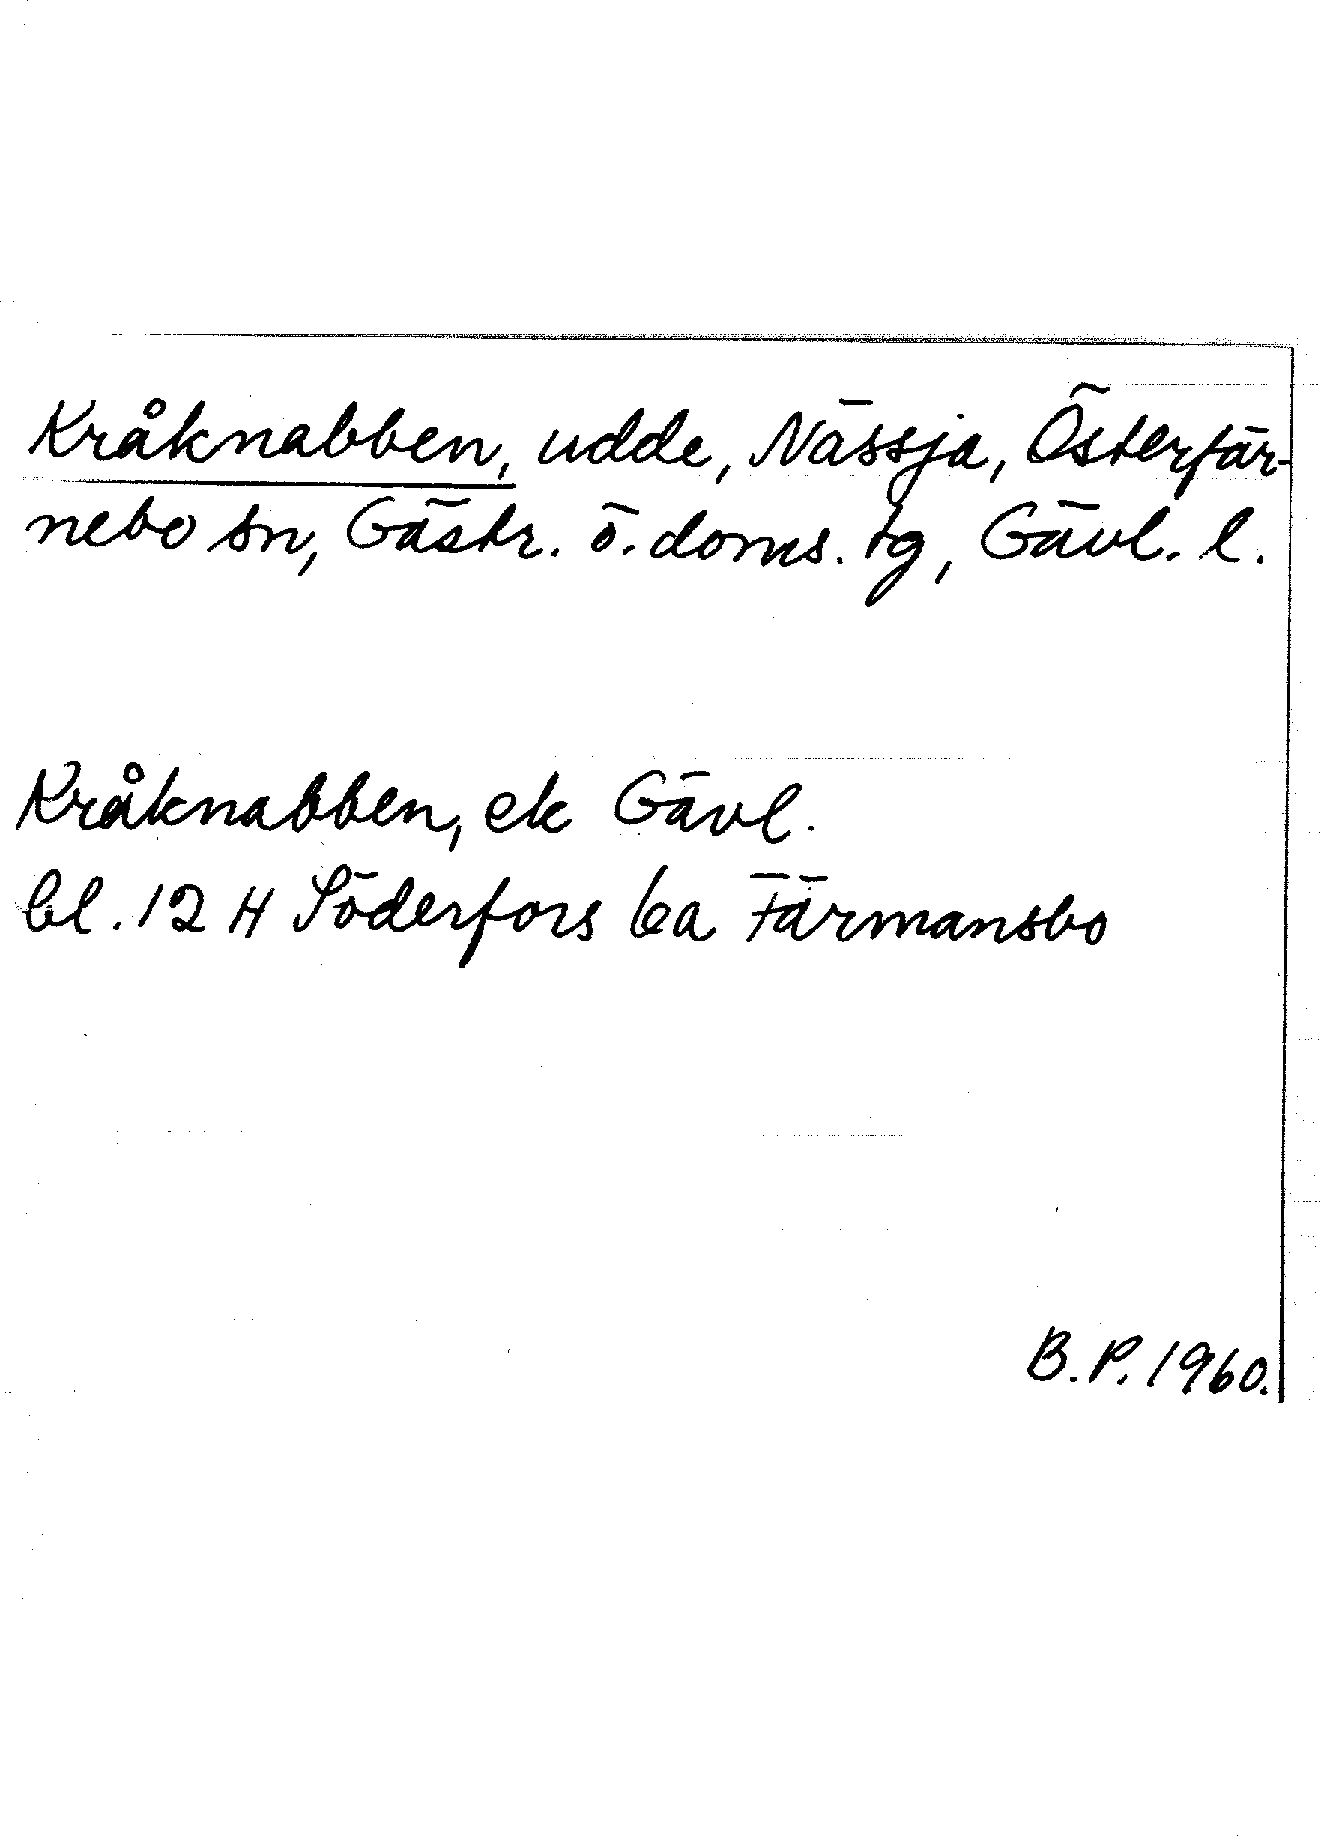 Kråknabben, udde, Nässja, Österfär-
nebo sn, Gästr. ö. doms. tg, Gävl. l.
Kråknabben, ek Gävl.
bl. 12 H Söderfors 6a Färmansbo
B.P. 1960.